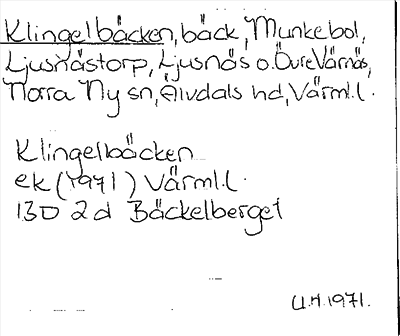 Klingelbäcken, bäck, Munkebol,
Ljusnästorp, Ljusnäs o. Övre Värnäs,
Norra Ny sn, Älvdals hd, Värml. l.
Klingelbäcken
ek (1971) Värml. l.
13D 2d Bäckelberget
U.H. 1971.